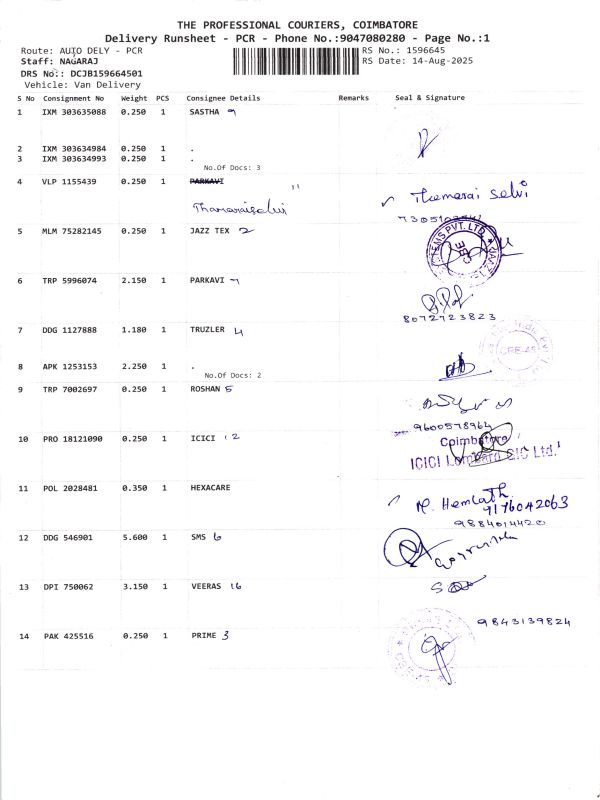 THE PROFESSIONAL COURIERS, COIMBATORE
Delivery Runsheet - PCR - Phone No.:9047080280 - Page No.:1
Route: AUTO DELY - PCR
RS No.: 1596645
Staff: NAGARAJ
RS Date: 14-Aug-2025
DRS No.: DCJB159664501
Vehicle: Van Delivery
S No Consignment No Weight PCS Consignee Details Remarks Seal & Signature
1 IXM 303635088 0.250 1 SASTHA
2 IXM 303634984 0.250 1 .
3 IXM 303634993 0.250 1 .
No.Of Docs: 3
4 VLP 1155439 0.250 1 PARKAVI "
Thamaraiselvi
Thamarai Selvi
5 MLM 75282145 0.250 1 JAZZ TEX 2
6 TRP 5996074 2.150 1 PARKAVI
8072723823
7 DDG 1127888 1.180 1 TRUZLER 4
8 APK 1253153 2.250 1 .
No.Of Docs: 2
9 TRP 7002697 0.250 1 ROSHAN 5
9600578964
10 PRO 18121090 0.250 1 ICICI 12
Coimbatore
ICICI Lombard GIC Ltd.
11 POL 2028481 0.350 1 HEXACARE
M. Hemlath
9176042063
9884014420
12 DDG 546901 5.600 1 SMS 6
13 DPI 750062 3.150 1 VEERAS 16
9843139824
14 PAK 425516 0.250 1 PRIME 3